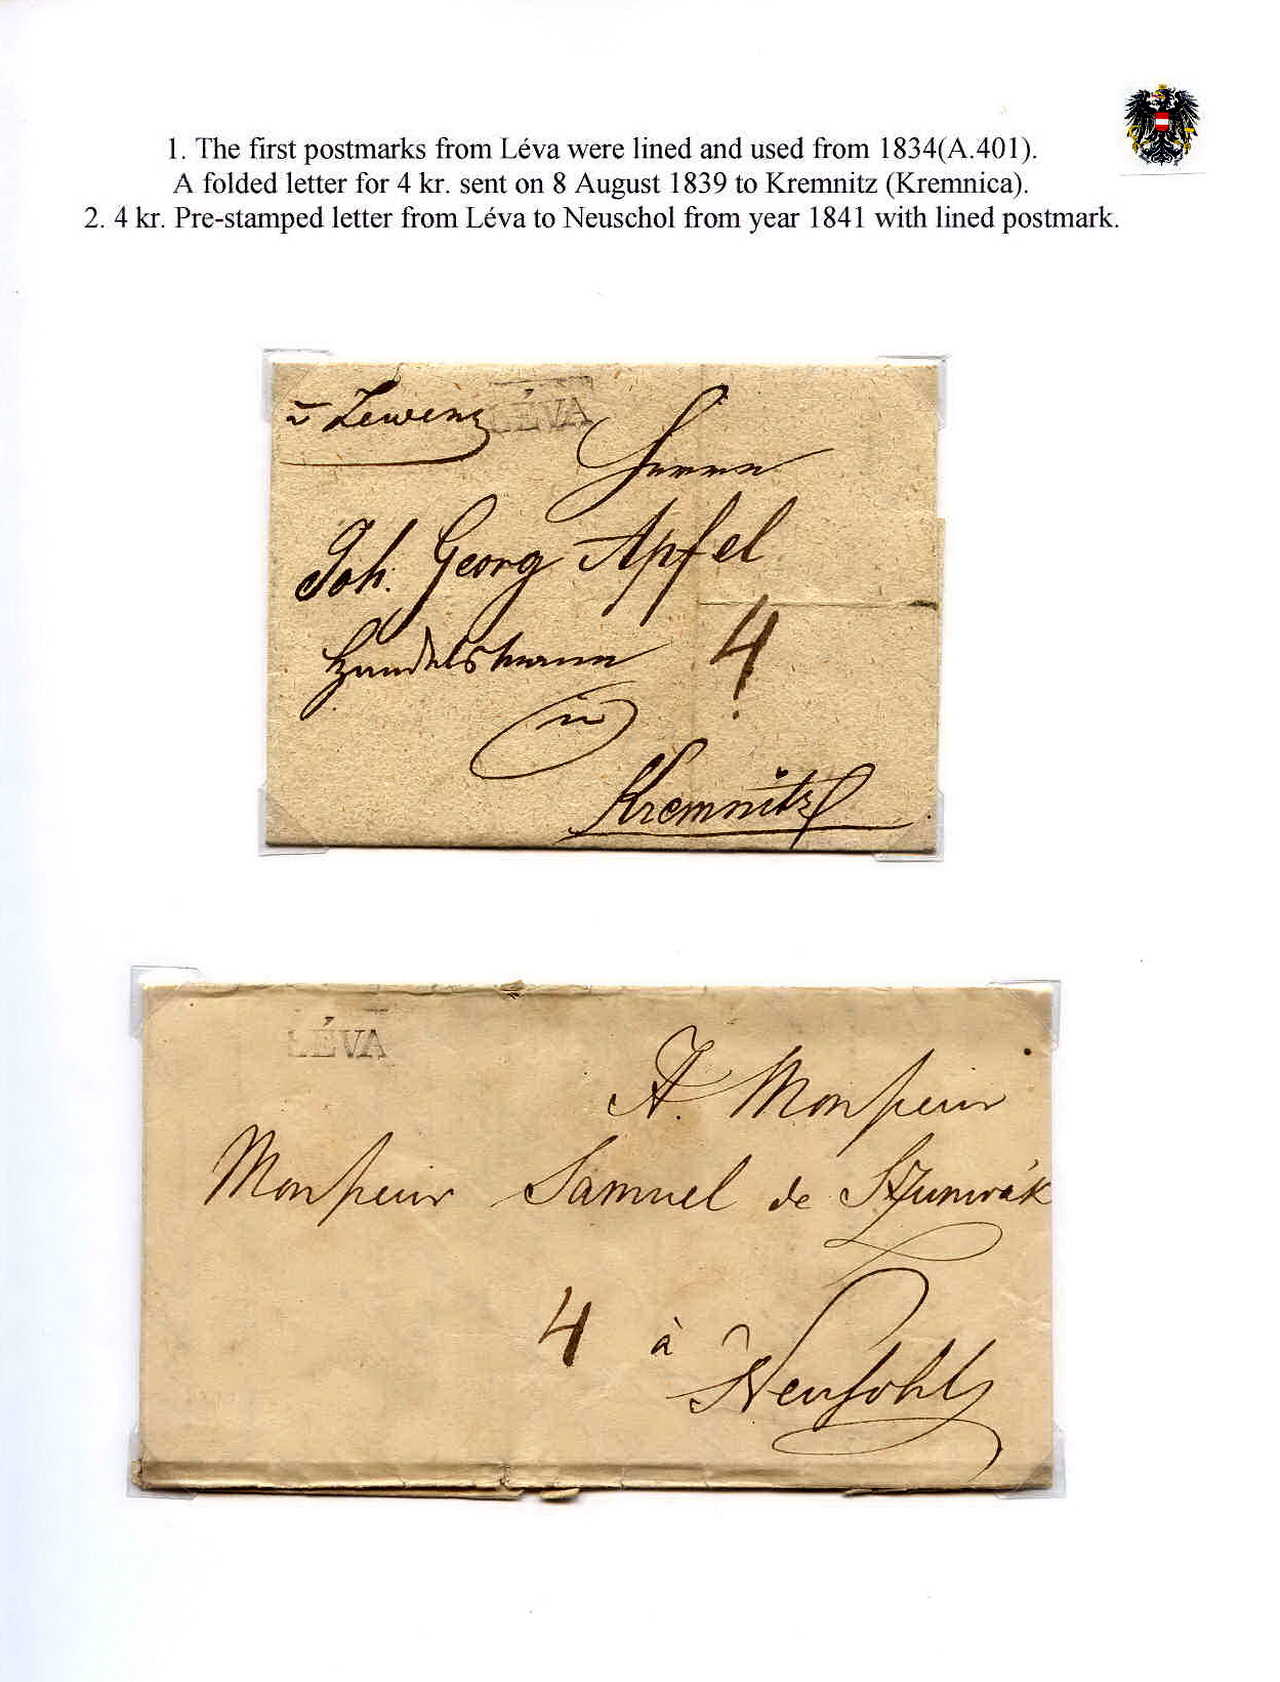 1. The first postmarks from Léva were lined and used from 1834(A.401).
A folded letter for 4 kr. sent on 8 August 1839 to Kremnitz (Kremnica).
2. 4 kr. Pre-stamped letter from Léva to Neuschol from year 1841 with lined postmark.
Lewenz LÉVA
Herrn
Joh. Georg Apfel
Handelsmann 4
in
Kremnitz
LÉVA
A Monsieur
Monsieur Samuel de
4 à
Neusohl